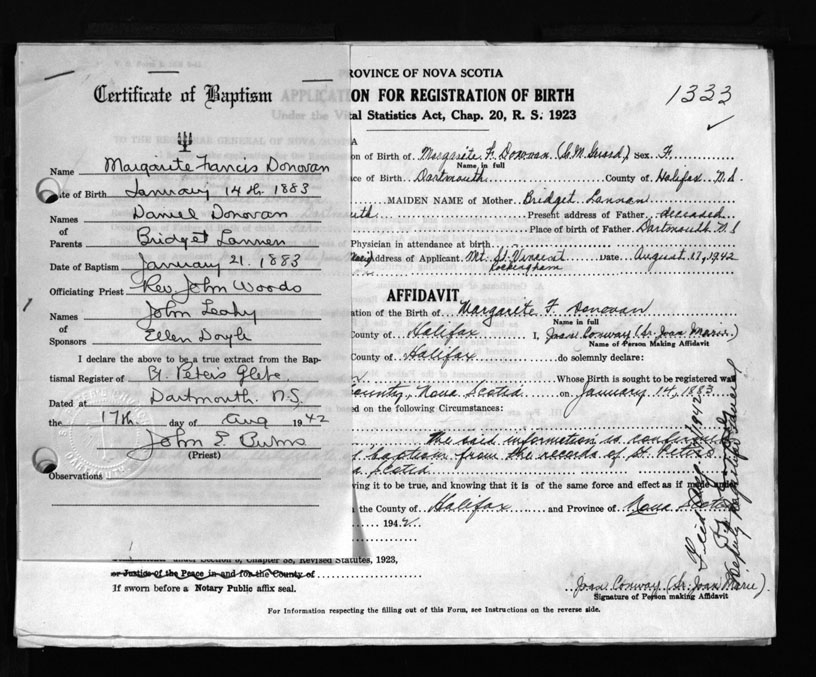 Certificate of Baptism
Name Margarite Francis Donovan
Date of Birth January 14th 1883
Names Daniel Donovan
of
Parents Bridget Lannen
Date of Baptism January 21. 1883
Officiating Priest Rev John Woods
Names John Leahy
of
Sponsors Ellen Doyle
I declare the above to be a true extract from the Bap-
tismal Register of St. Peter's Glebe
Dated at Dartmouth N.S.
the 17th day of Aug 1942
John E Burns
(Priest)
Observations
PROVINCE OF NOVA SCOTIA
APPLICATION FOR REGISTRATION OF BIRTH
Under the Vital Statistics Act, Chap. 20, R. S. 1923
1333
on of Birth of Margarite F. Donovan Sex F.
Name in full
ce of Birth Dartmouth County of Halifax N S
MAIDEN NAME of Mother Bridget Lannan
uth Present address of Father deceased
Place of birth of Father Dartmouth N S
Physician in attendance at birth
Address of Applicant Mt. St. Vincent Date August 17, 1942
Rockingham
AFFIDAVIT
ation of the Birth of Margarite F. Donovan
Name in full
County of Halifax I, Joan Conway (Sr. Joan Marie)
Name of Person Making Affidavit
County of Halifax do solemnly declare:
Whose Birth is sought to be registered was
County, Nova Scotia on January 14, 1883
ed on the following Circumstances:
The said information is
of baptism from the records of St. Peter's
a Scotia
ving it to be true, and knowing that it is of the same force and effect as if made under
the County of Halifax and Province of Nova Scotia
1942
under Section 8, Chapter 38, Revised Statutes, 1923,
or Justice of the Peace in and for the County of
If sworn before a Notary Public affix seal.
Joan Conway (Sr. Joan Marie)
Signature of Person making Affidavit
For Information respecting the filling out of this Form, see Instructions on the reverse side.
Deputy Registrar General